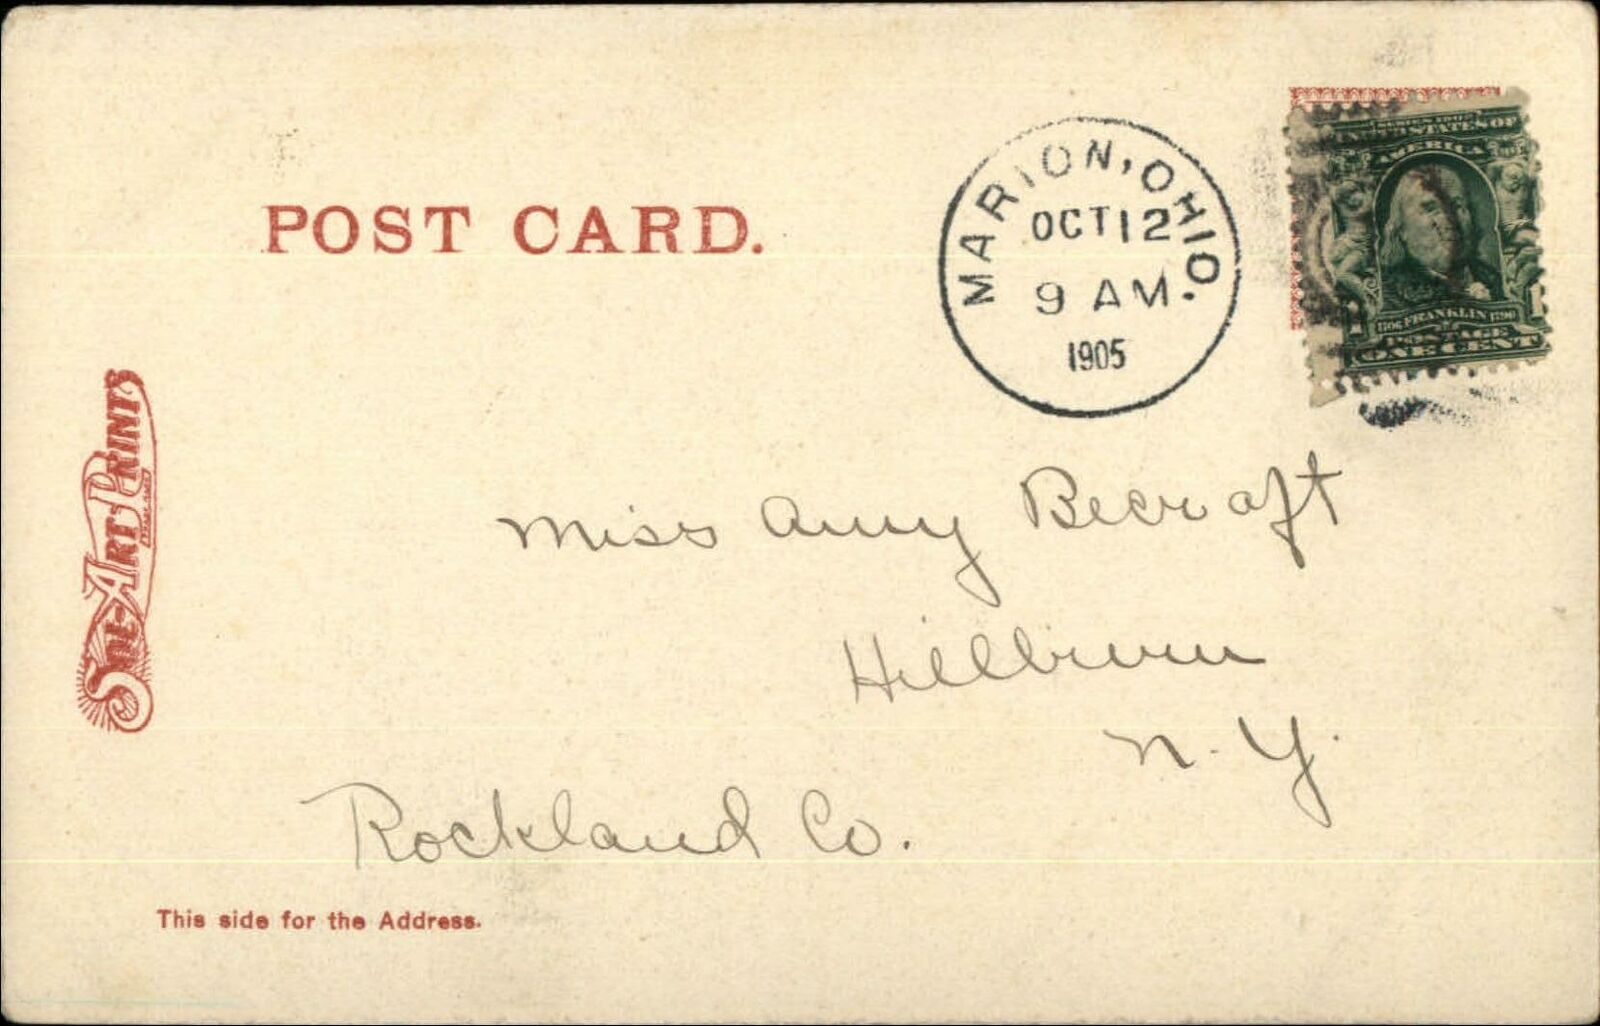 POST CARD.
MARION, OHIO.
OCT 12
9 AM
1905
SERIES 1902
UNITED STATES OF
AMERICA
1706 FRANKLIN 1790
POSTAGE
ONE CENT
SOL-ART PRINTS
Miss Amy Becraft
Hillburn
N. Y.
Rockland Co.
This side for the Address.